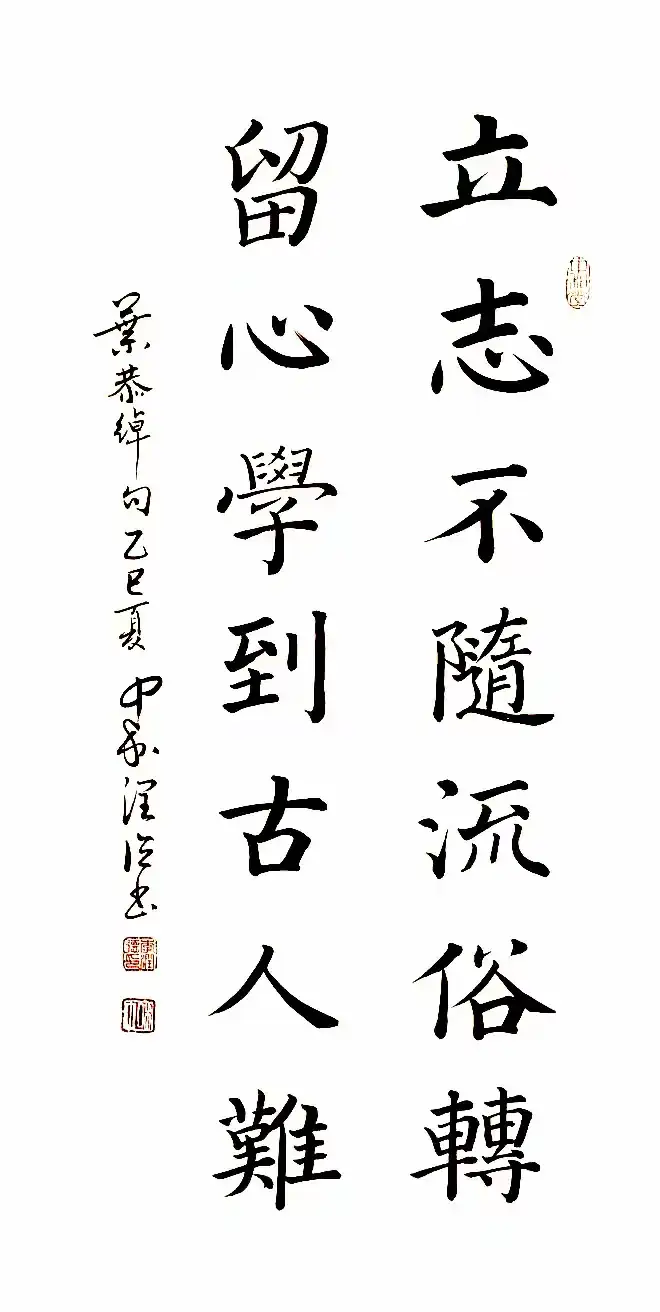 立志不隨流俗轉
留心學到古人難
葉恭綽句乙巳夏中